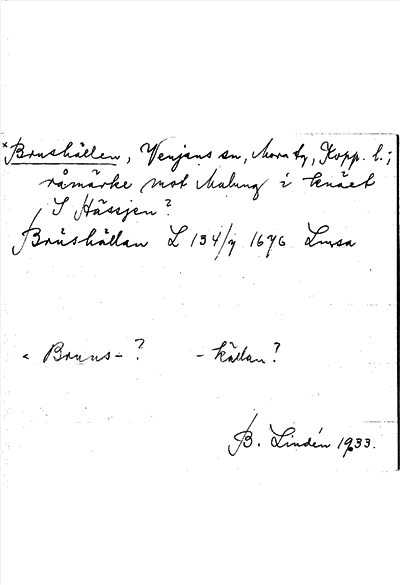 *Brushällen, Venjans sn, Mora tg, Kopp. l.;
råmärke mot Malung i knäet
S Hässjen?
Brüshällan L 134/7 1676 Lmsa
< Bruns-? - källan?
B. Lindén 1933.